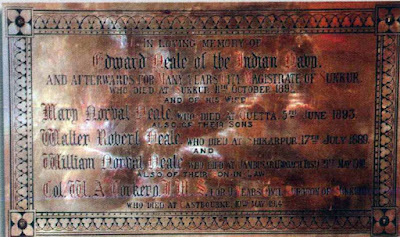 IN LOVING MEMORY OF
Edward Beale of the Indian Navy.
AND AFTERWARDS FOR MANY YEARS MAGISTRATE OF SUKKUR
WHO DIED AT SUKKUR OCTOBER
AND OF HIS WIFE
Mary Norval Beale WHO DIED AT QUETTA 5TH JUNE 1893
ALSO OF THEIR SONS
Walter Robert Beale WHO DIED AT SHIKARPUR 17TH JULY
AND
William Norval Beale WHO DIED AT MAY
ALSO OF THEIR SON-IN-LAW
Col. W. A. Corkery I.M.S. FOR YEARS
WHO DIED AT EASTBOURNE MAY